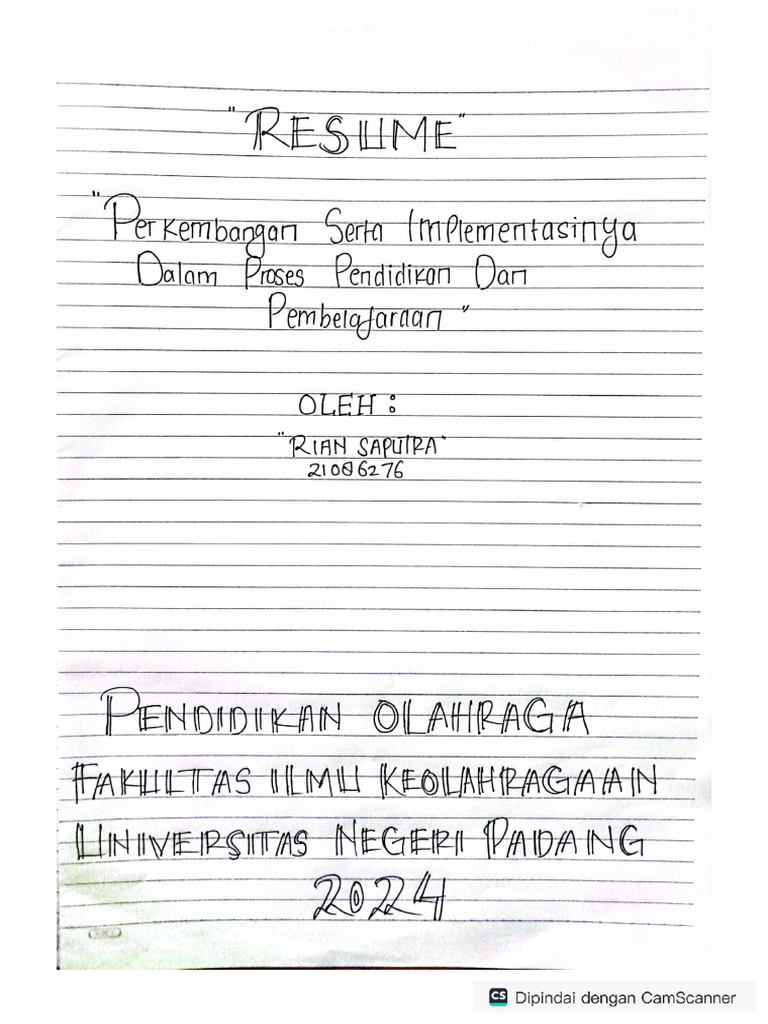 "RESUME"
"Perkembangan Serta Implementasinya
Dalam Proses Pendidikan Dan
Pembelajaraan"
OLEH :
"RIAN SAPUTRA"
21086276
PENDIDIKAN OLAHRAGA
FAKULTAS ILMU KEOLAHRAGAAN
UNIVERSITAS NEGERI PADANG
2024
CS Dipindai dengan CamScanner